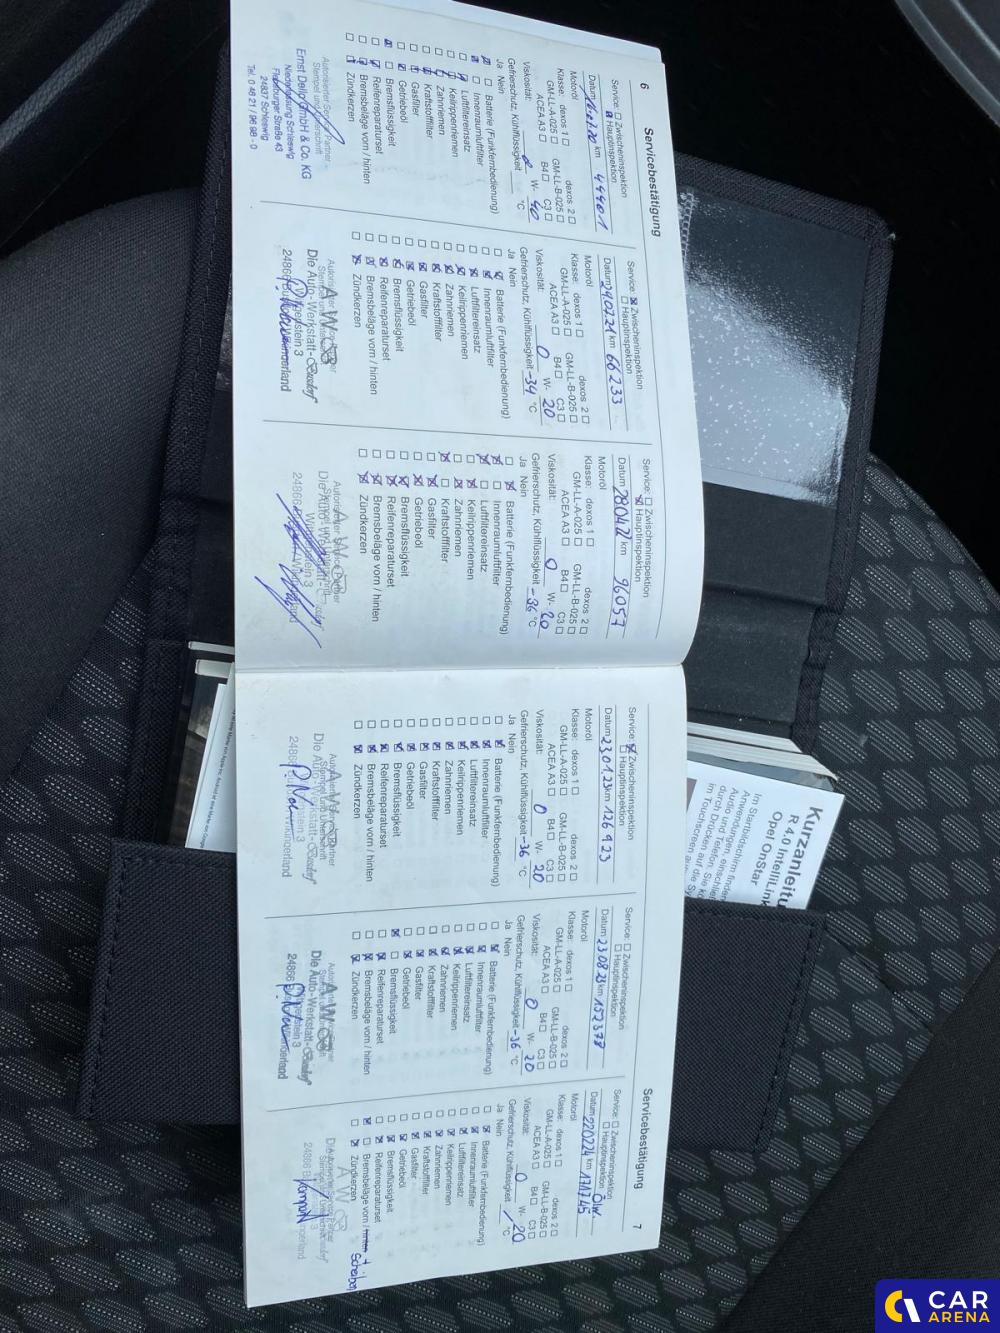 6
Servicebestätigung
Service: Zwischeninspektion
Hauptinspektion
Datum km 44401
Motoröl
Klasse: dexos 1 dexos 2
GM-LL-A-025 GM-LL-B-025
ACEA A3 B4 C3
Viskosität: 0 W- 40
Gefrierschutz, Kühlflüssigkeit °C
Ja Nein
Batterie (Funkfernbedienung)
Innenraumluftfilter
Luftfiltereinsatz
Keilrippenriemen
Zahnriemen
Kraftstofffilter
Gasfilter
Getriebeöl
Bremsflüssigkeit
Reifenreparaturset
Bremsbeläge vorn / hinten
Zündkerzen
Autorisierter Service Partner -
Stempel und Unterschrift
Ernst Dello GmbH & Co. KG
Niederlassung Schleswig
Flensburger Straße 43
24837 Schleswig
Tel. 0 46 21 / 96 98 - 0
Service: Zwischeninspektion
Hauptinspektion
Datum 290721 km 66233
Motoröl
Klasse: dexos 1 dexos 2
GM-LL-A-025 GM-LL-B-025
ACEA A3 B4 C3
Viskosität: 0 W- 20
Gefrierschutz, Kühlflüssigkeit -34 °C
Ja Nein
Batterie (Funkfernbedienung)
Innenraumluftfilter
Luftfiltereinsatz
Keilrippenriemen
Zahnriemen
Kraftstofffilter
Gasfilter
Getriebeöl
Bremsflüssigkeit
Reifenreparaturset
Bremsbeläge vorn / hinten
Zündkerzen
Die Auto-Werkstatt-
24866
Service: Zwischeninspektion
Hauptinspektion
Datum 280422 km 96057
Motoröl
Klasse: dexos 1 dexos 2
GM-LL-A-025 GM-LL-B-025
ACEA A3 B4 C3
Viskosität: 0 W- 20
Gefrierschutz, Kühlflüssigkeit -36 °C
Ja Nein
Batterie (Funkfernbedienung)
Innenraumluftfilter
Luftfiltereinsatz
Keilrippenriemen
Zahnriemen
Kraftstofffilter
Gasfilter
Getriebeöl
Bremsflüssigkeit
Reifenreparaturset
Bremsbeläge vorn / hinten
Zündkerzen
Autorisierter Service Partner
24866
Service: Zwischeninspektion
Hauptinspektion
Datum 230123 km 126123
Motoröl
Klasse: dexos 1 dexos 2
GM-LL-A-025 GM-LL-B-025
ACEA A3 B4 C3
Viskosität: 0 W- 20
Gefrierschutz, Kühlflüssigkeit -36 °C
Ja Nein
Batterie (Funkfernbedienung)
Innenraumluftfilter
Luftfiltereinsatz
Keilrippenriemen
Zahnriemen
Kraftstofffilter
Gasfilter
Getriebeöl
Bremsflüssigkeit
Reifenreparaturset
Bremsbeläge vorn / hinten
Zündkerzen
Service: Zwischeninspektion
Hauptinspektion
Datum 230923 km 152378
Motoröl
Klasse: dexos 1 dexos 2
GM-LL-A-025 GM-LL-B-025
ACEA A3 B4 C3
Viskosität: 0 W- 20
Gefrierschutz, Kühlflüssigkeit -36 °C
Ja Nein
Batterie (Funkfernbedienung)
Innenraumluftfilter
Luftfiltereinsatz
Keilrippenriemen
Zahnriemen
Kraftstofffilter
Gasfilter
Getriebeöl
Bremsflüssigkeit
Reifenreparaturset
Bremsbeläge vorn / hinten
Zündkerzen
Die Auto-Werkstatt-
24866
Servicebestätigung
7
Service: Zwischeninspektion
Hauptinspektion Ölw.
Datum 220224 km 171745
Motoröl
Klasse: dexos 1 dexos 2
GM-LL-A-025 GM-LL-B-025
ACEA A3 B4 C3
Viskosität: 0 W- 20
Gefrierschutz, Kühlflüssigkeit / °C
Ja Nein
Batterie (Funkfernbedienung)
Innenraumluftfilter
Luftfiltereinsatz
Keilrippenriemen
Zahnriemen
Kraftstofffilter
Gasfilter
Getriebeöl
Bremsflüssigkeit
Reifenreparaturset
Bremsbeläge vorn / hinten + Scheiben
Zündkerzen
24866
Kurzanleitu
R 4.0 IntelliLink
Opel OnStar
Im Startbildschirm finden
Anwendungen
Audio und Telefon
durch Drücken auf
im Touchscreen
CAR
ARENA